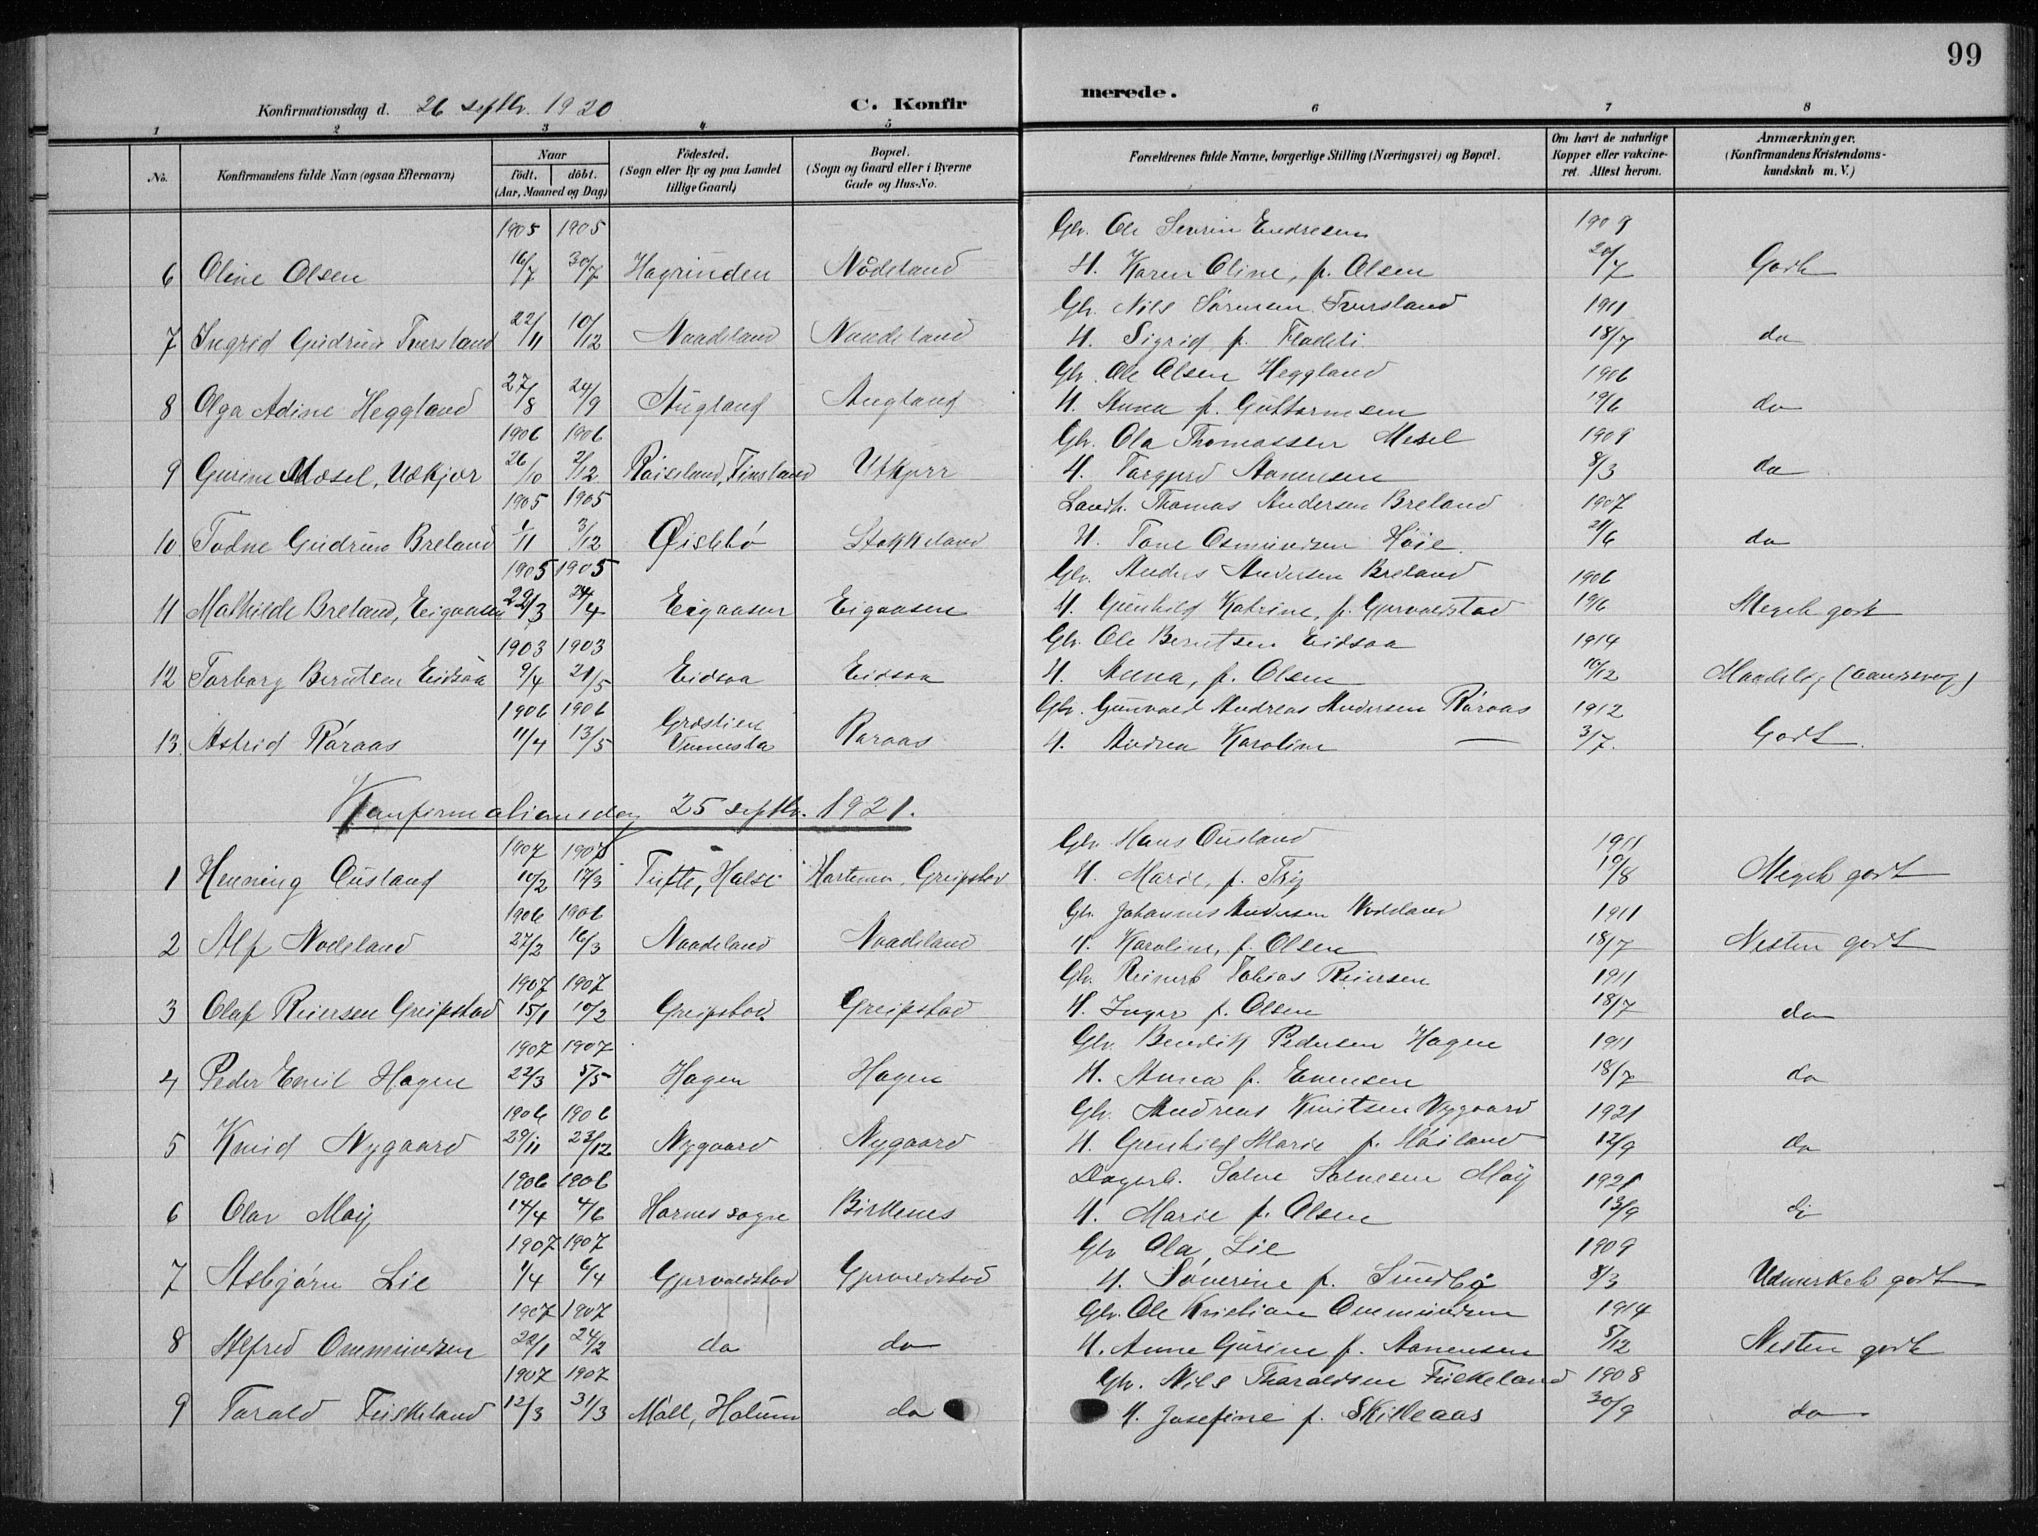 99
Konfirmationsdag d. 26 septbr. 1920 C. Konfirmerede.
1 2 3 4 5 6 7 8
No. Konfirmandens fulde Navn (ogsaa Efternavn) Naar födt. döbt. (Aar, Maaned og Dag) Födested. (Sogn eller By og paa Landet tillige Gaard) Bopæl. (Sogn og Gaard eller i Byerne Gade og Hus-No. Forældrenes fulde Navne, borgerlige Stilling (Næringsvei) og Bopæl. Om havt de naturlige Kopper eller vakcineret. Attest herom. Anmærkninger. (Konfirmandens Kristendomskundskab m. V.)
1905 1905 Gbr. Ole Sevrin Endresen 1909
6 Oline Olsen 16/7 30/7 Nodeland H. Karen Oline, f. Olsen 20/7 Godt
Gbr. Nils Sørensen Tversland 1911
7 Ingrid Gudrun Tversland 22/11 10/12 Naadeland Naadeland H. Sigrid f. Fladeli 18/7 do
Gbr. Ole Olsen Heggland 1906
8 Olga Adine Heggland 27/8 24/9 Augland Augland H. Anna f. Guttormsen 19/6 do
1906 1906 Gbr. Ola Thomassen Mesel 1909
9 Gurine Mæsel, Udkjær 26/10 2/12 Røiseland, Finsland Utkjærr H. Torgjerd Aanensen 8/3 do
1905 1905 Landh. Thomas Andersen Breland 1907
10 Todne Gudrun Breland 1/11 3/12 Øislebø Stokkeland H. Tone Osmundsen Høie. 21/6 do
1905 1905 Gbr. Anders Andersen Breland 1906
11 Mathilde Breland, Eigaasen 22/3 24/4 Eigaasen Eigaasen H. Gunhild Katrine, f. Gjervoldstad 19/6 Meget godt
1903 1903 Gbr. Ole Berntsen Eidsaa 1914
12 Torborg Berntsen Eidsaa 9/4 21/5 Eidsaa Eidsaa H. Anna, f. Olsen 10/12 Maadelig (aandssvag)
1906 1906 Gbr. Gunvald Andreas Andersen Råraas 1912
13 Astrid Råraas 11/4 13/5 Vennesla Raraas H. Andrea Karoline — 3/7. Godt.
Konfirmationsdag 25 septbr. 1921.
1907 1907 Gbr. Hans Ousland 1911
1 Henning Ousland 10/2 17/3 Tufte, Halse Hortemo, Greipstad H. Marie, f. Try 19/8 Meget godt
1906 1906 Gbr. Johannes Andersen Nodeland 1911
2 Alf Nodeland 27/2 16/3 Naadeland Naadeland H. Karoline, f. Olsen 18/7 Nesten godt
1907 1907 Gbr. Reinert Tobias Reiersen 1911
3 Olaf Reiersen Greipstad 15/1 10/2 Greipstad Greipstad H. Inger f. Olsen 18/7 do
1907 1907 Gbr. Bendik Pedersen Hagen 1911
4 Peder Emil Hagen 22/3 5/5 Hagen Hagen H. Anna f. Evensen 18/7 do
1906 1906 Gbr. Andreas Knutsen Nygaard 1921
5 Knud Nygaard 29/11 23/12 Nygaard Nygaard H. Gunhild Marie f. Høiland 12/9 do
1906 1906 Dagarb. Salve Salvesen Moy 1921
6 Olav Moy 14/4 4/6 Hornes sogn Birkenes H. Marie f. Olsen 13/9 do
1907 1907 Gbr Ola Lie 1909
7 Asbjørn Lie 1/4 6/4 Gjervoldstad Gjervoldstad H. Søverine f. Sundby 8/3 Udmerket godt
1907 1907 Gbr. Ole Kristian Ommundsen 1914
8 Alfred Ommundsen 22/1 24/2 do do H. Anne Gurine f. Aanensen 5/12 Nesten godt
1907 1907 Gbr. Nils Tharaldsen Fuskeland 1908
9 Torald Fuskeland 12/3 31/3 Møll, Holum do H. Josefine f. Skilleaas 30/9 do